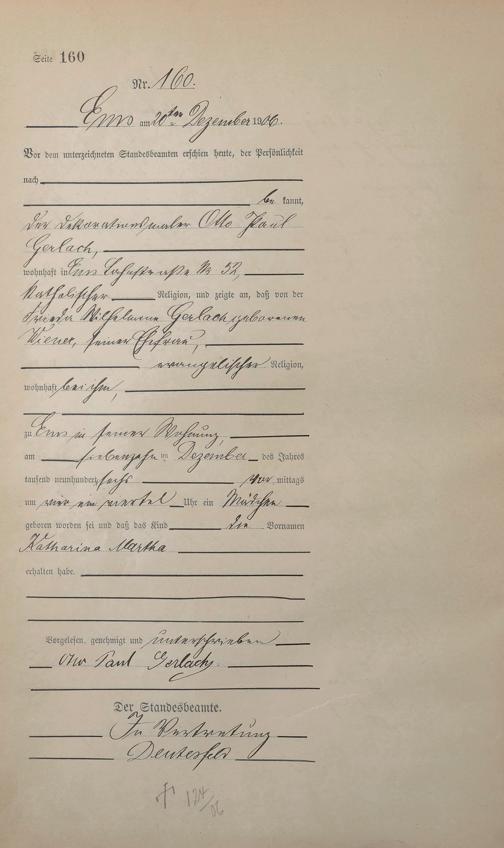 Seite 160
Nr. 160.
Ems am 20ten Dezember 1906.
Vor dem unterzeichneten Standesbeamten erschien heute, der Persönlichkeit
nach
be kannt,
der Dekorationsmaler Otto Paul
Gerlach,
wohnhaft in Ems Bahnstraße № 52,
katholischer Religion, und zeigte an, daß von der
Frieda Wilhelmine Gerlach geborenen
Wiener, seiner Ehefrau,
evangelischer Religion,
wohnhaft bei ihm,
zu Ems in seiner Wohnung,
am siebenzehn ten Dezember des Jahres
tausend neunhundert sechs vor mittags
um vier ein viertel Uhr ein Mädchen
geboren worden sei und daß das Kind die Vornamen
Katharina Martha
erhalten habe.
Vorgelesen, genehmigt und unterschrieben
Otto Paul Gerlach.
Der Standesbeamte.
In Vertretung
124/06